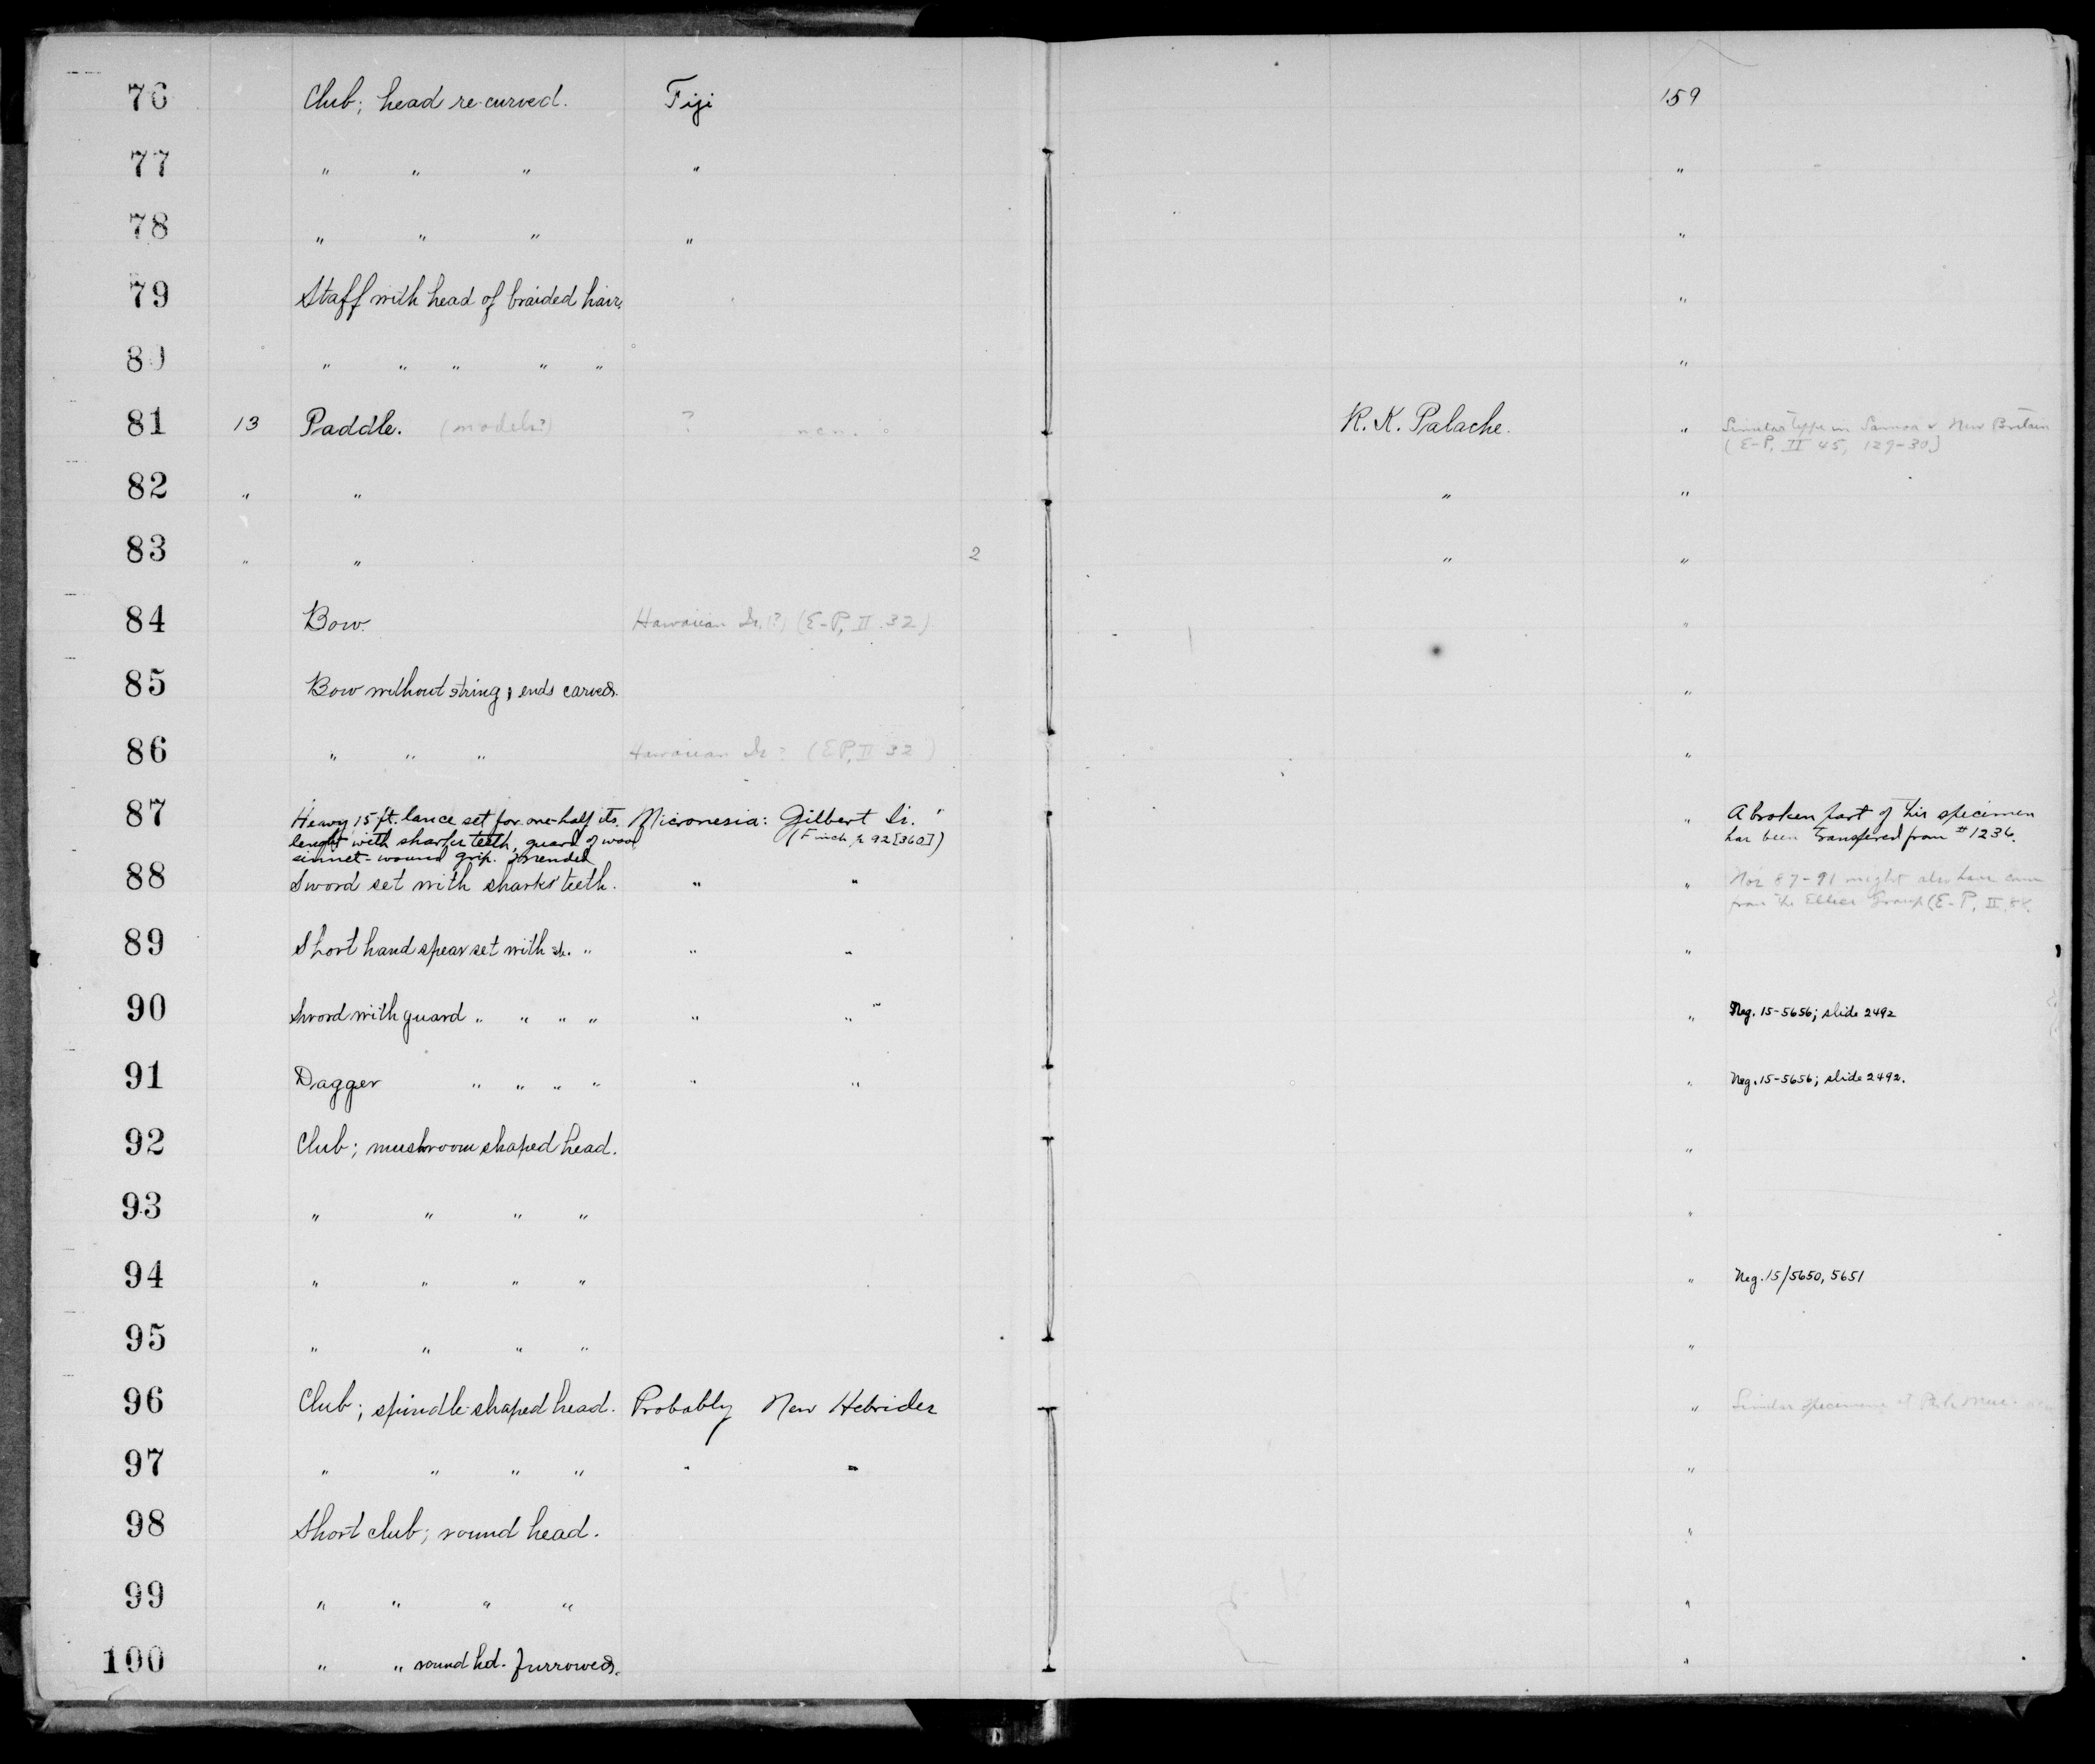 76 Club; head re-curved. Fiji 159
77 " " " " "
78 " " " " "
79 Staff with head of braided hair. "
80 " " " " " "
81 13 Paddle. (model?) ? R. K. Palache. " Similar type in Samoa & New Britain
(E-P, II 45, 129-30)
82 " " " "
83 " " 2 " "
84 Bow. Hawaiian Is. (?) (E-P, II 32) "
85 Bow without string; ends carved. "
86 " " " Hawaiian Is ? (E-P, II 32) "
87 Heavy 15 ft. lance set for one-half its Micronesia: Gilbert Is. " A broken part of his specimen
lenght with sharks teeth, guard of wood (Finch, p. 92 [360]) has been transfered from #1236.
sinnet-wound grip. Mended
88 Sword set with sharks' teeth. " " " Nos 87-91 might also have come
from the Ellice Group (E-P, II, 88.
89 Short hand spear set with sh. " " " "
90 Sword with guard " " " " " " " Neg. 15-5656; slide 2492
91 Dagger " " " " " " " Neg. 15-5656; slide 2492.
92 Club; mushroom shaped head. "
93 " " " " "
94 " " " " " Neg. 15/5650, 5651
95 " " " " "
96 Club; spindle-shaped head. Probably New Hebrides " Similar specimens
97 " " " " " " "
98 Short club; round head. "
99 " " " " "
100 " " round hd. furrowed. "